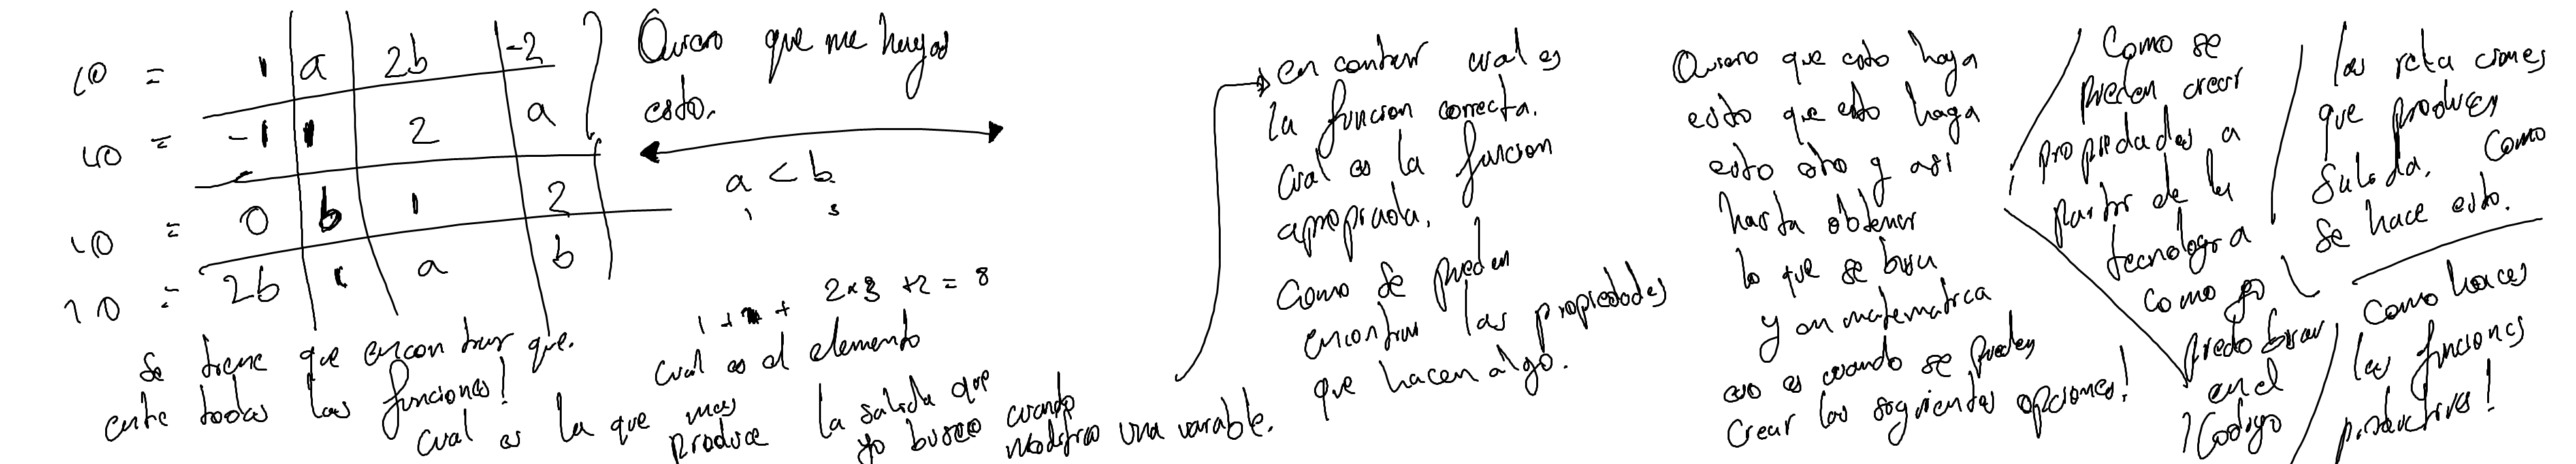 10 = 1 | a | 2b | -2
10 = -1 | 1 | 2 | a
10 = 0 | b | 1 | 2
10 = 2b | 1 | a | b
Quiero que me hagas
esto.
a < b
1 3
1 + + 2*3 +2 = 8
Se tiene que encontrar que.
entre todas las funciones!
cual es la que mas
produce
cual es el elemento
la salida que
yo busco cuando
modifico una variable.
encontrar cual es
la funcion correcta.
Cual es la funcion
apropiada.
Como se pueden
encontrar las propiedades
que hacen algo.
Quiero que esto haga
esto que esto haga
esto otro y asi
hasta obtener
lo que se busca
y en matematica
eso es cuando se pueden
crear las siguientes opciones!
Como se
pueden crear
propiedades a
partir de la
tecnologia
como yo
puedo buscar
en el
codigo
las relaciones
que producen
Salida. Como
se hace esto.
Como haces
las funciones
productivas!